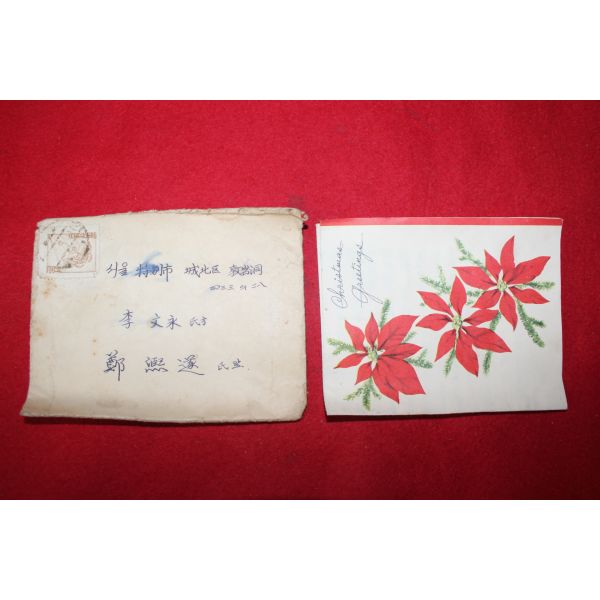 서울 特別市 城北区 敦岩洞
李 文永 氏方
鄭 熙遂 氏
Christmas
Greetings